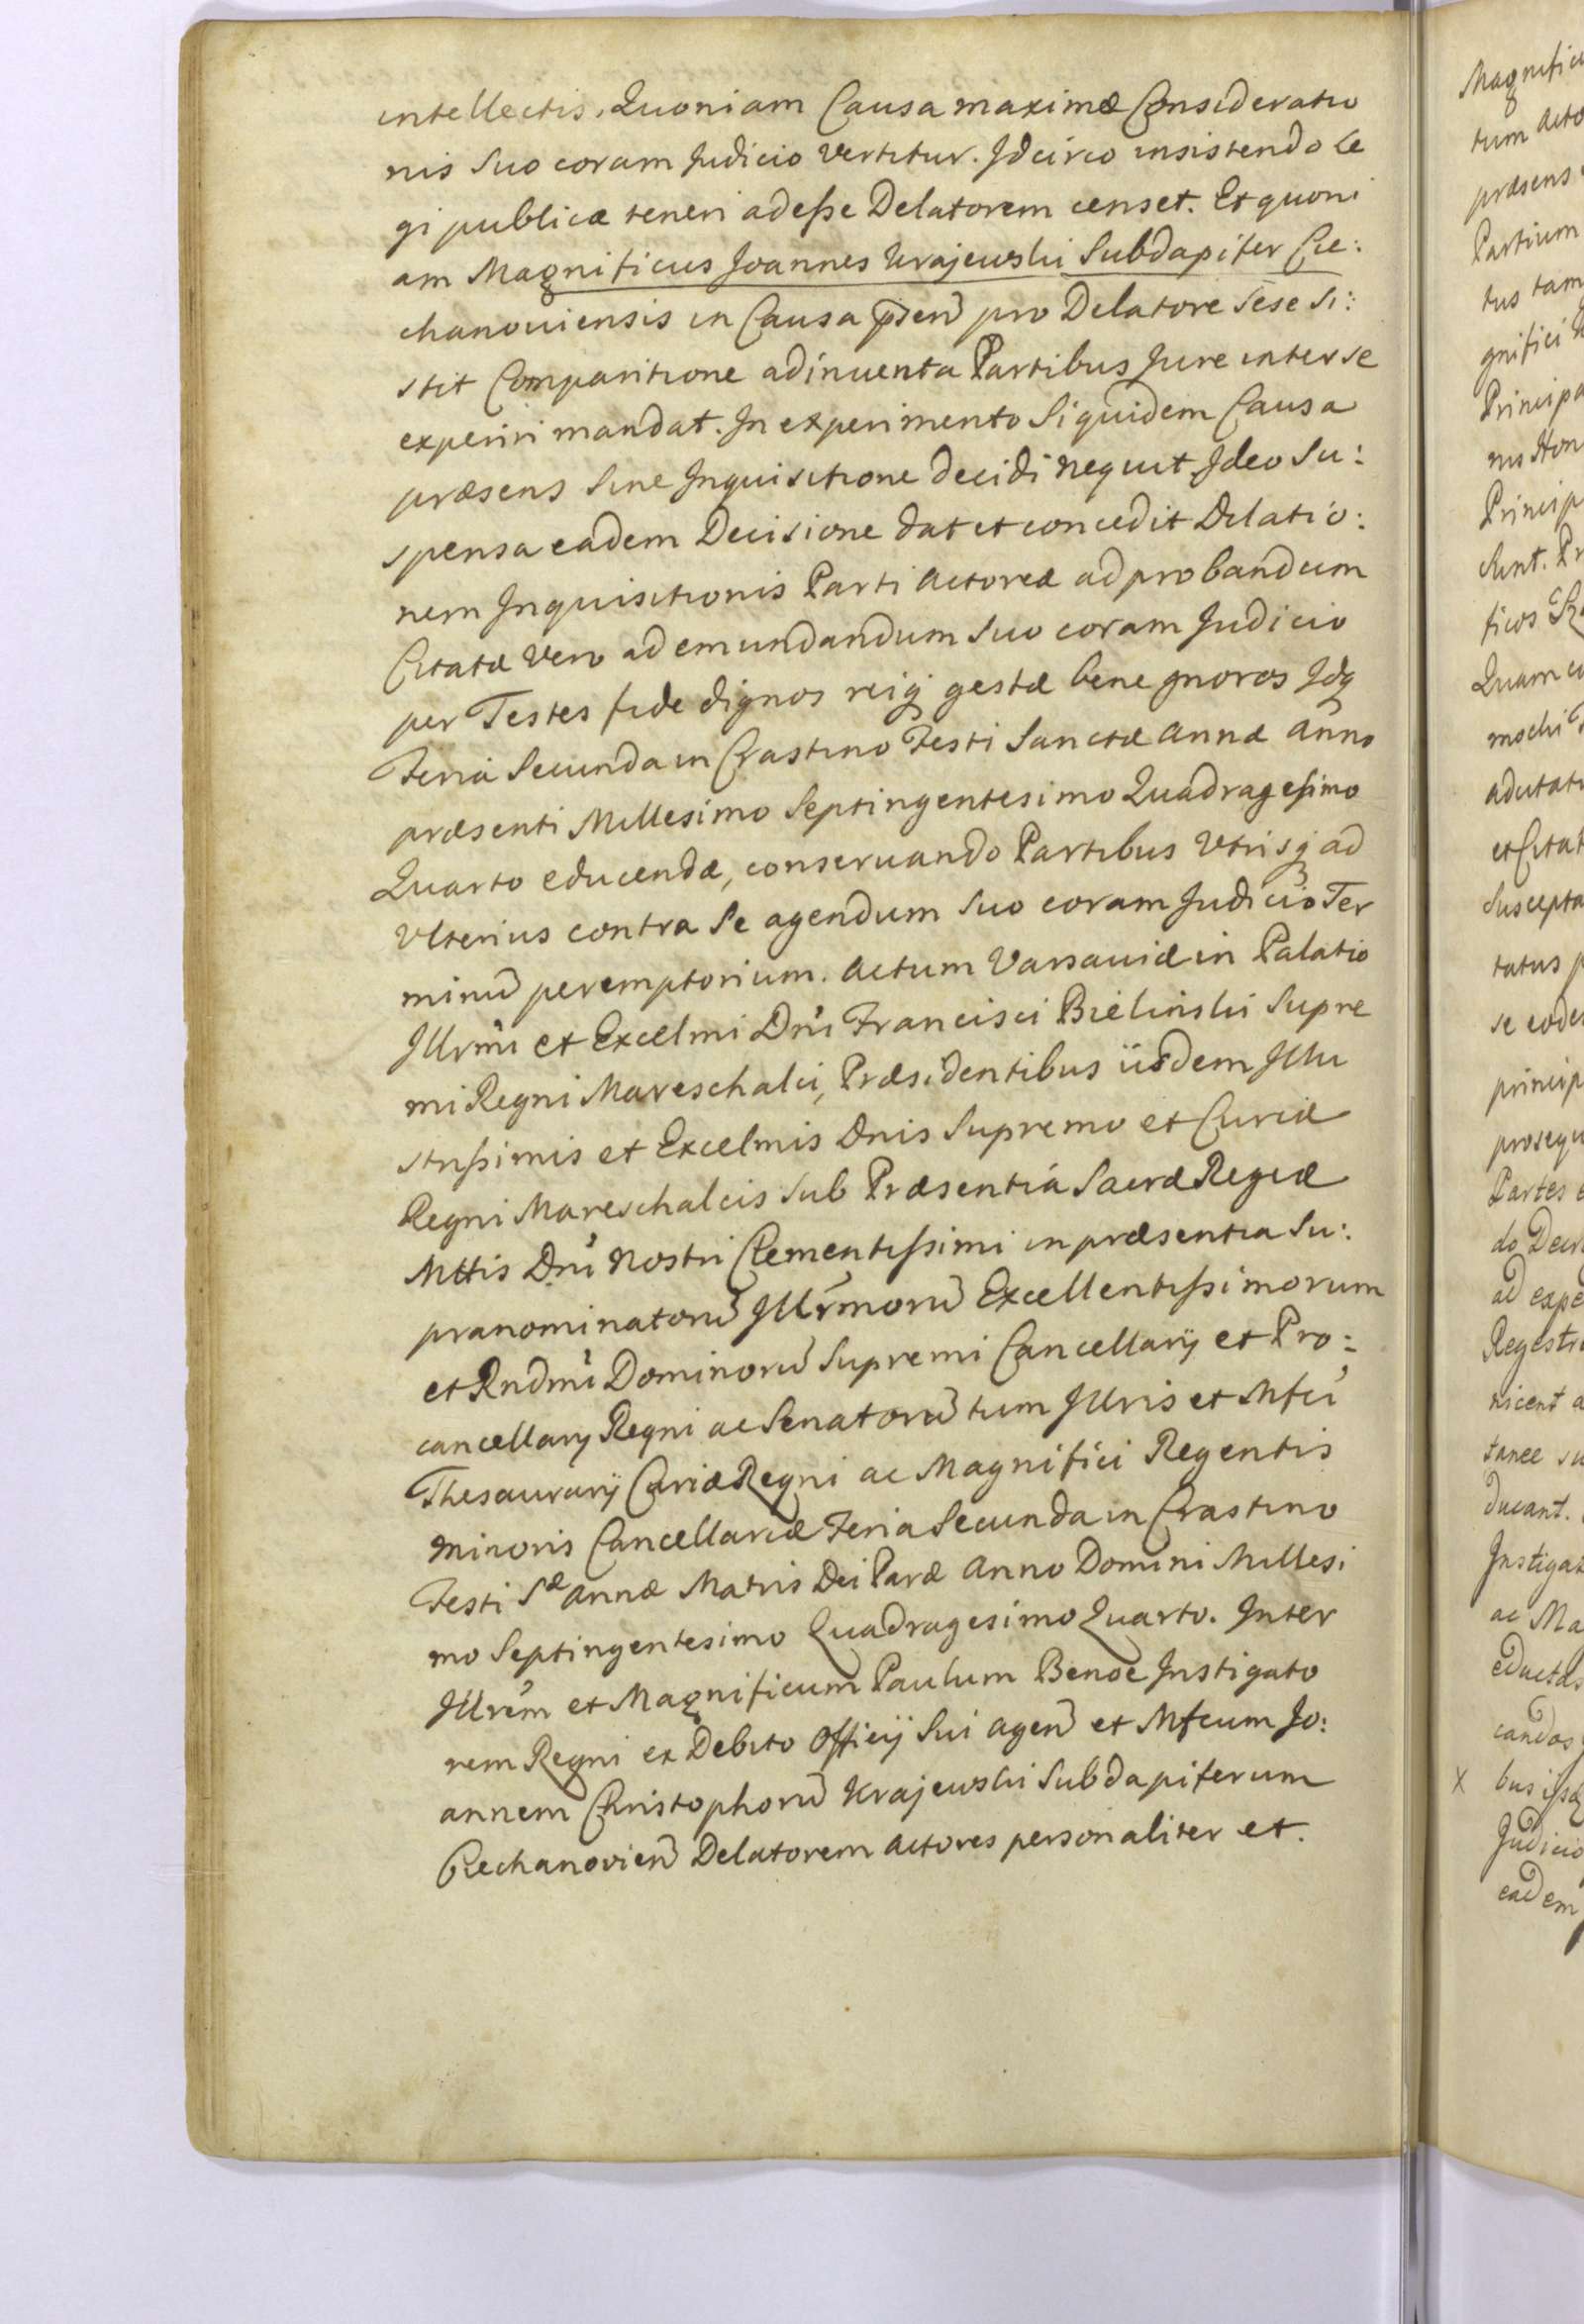 intellectis, Quoniam Causa maximæ Consideratio
nis Suo coram Judicio vertitur. Jdcirco insistendo Le
gi publicæ teneri adesse Delatorem censet. Et quoni
am Magnificus Joannes Krajewski Subdapifer Cie:
chanoviensis in Causa pñsen pro Delatore sese si:
stit Comparitione adinuenta Partibus Jure inter se
experiri mandat. Jn experimento Siquidem Causa
præsens Sine Jnquisitione decidi nequit Jdeo Su:
spensa eadem Decisione dat et concedit Dilatio:
nem Jnquisitionis Parti Actoreæ ad probandum
Citatæ Vero ad emundandum Suo coram Judicio
per Testes fide dignos reiq gestæ bene gnoros Jdq
Feria Secunda in Crastino Festi Sanctæ Annæ Anno
præsenti Millesimo Septingentesimo Quadragesimo
Quarto educendæ, conseruando Partibus Vtrisq ad
Vlterius contra Se agendum Suo coram Judicio Ter
minũ peremptorium. Actum Varsaviæ in Palatio
Jllrmi et Excelmi Dni Francisci Bielinski Supre
mi Regni Mareschalci, Præsidentibus iisdem Jllu
strissimis et Excelmis Dnis Supremo et Curiæ
Regni Mareschalcis Sub Præsentia Sacræ Regiæ
Mttis Dni Nostri Clementissimi in præsentia Su:
pranominatorũ Jllrmorũ Excellentissimorum
et Rndmi Dominorũ Supremi Cancellarij et Pro:
cancellarij Regni ac Senatorũ tum Jllris et Mfci
Thesaurarij Curiæ Regni ac Magnifici Regentis
minoris Cancellariæ Feria Secunda in Crastino
Festi Sæ Annæ Matris Dei Paræ Anno Domini Millesi
mo Septingentesimo Quadragesimo Quarto. Jnter
Jllrem et Magnificum Paulum Benoe Jnstigato
rem Regni ex Debito Officij Sui agen et Mfcum Jo:
annem Christophorũ Krajewski Subdapiferum
Ciechanovien Delatorem Actores personaliter et.
Magnific
tum Acto
præsens
Partium
tus tam
gnifici
Principa
nis Hon
Princip
Sunt. Pr
ficos
Quam
adutat
et Citat
Suscepta
tatus p
se eode
princip
prosequ
Partes
do Decr
ad expe
Regestr
nicent a
tance su
ducant.
Jnstigat
ac Ma
eductas
candas
x bus
Judicio
eadem